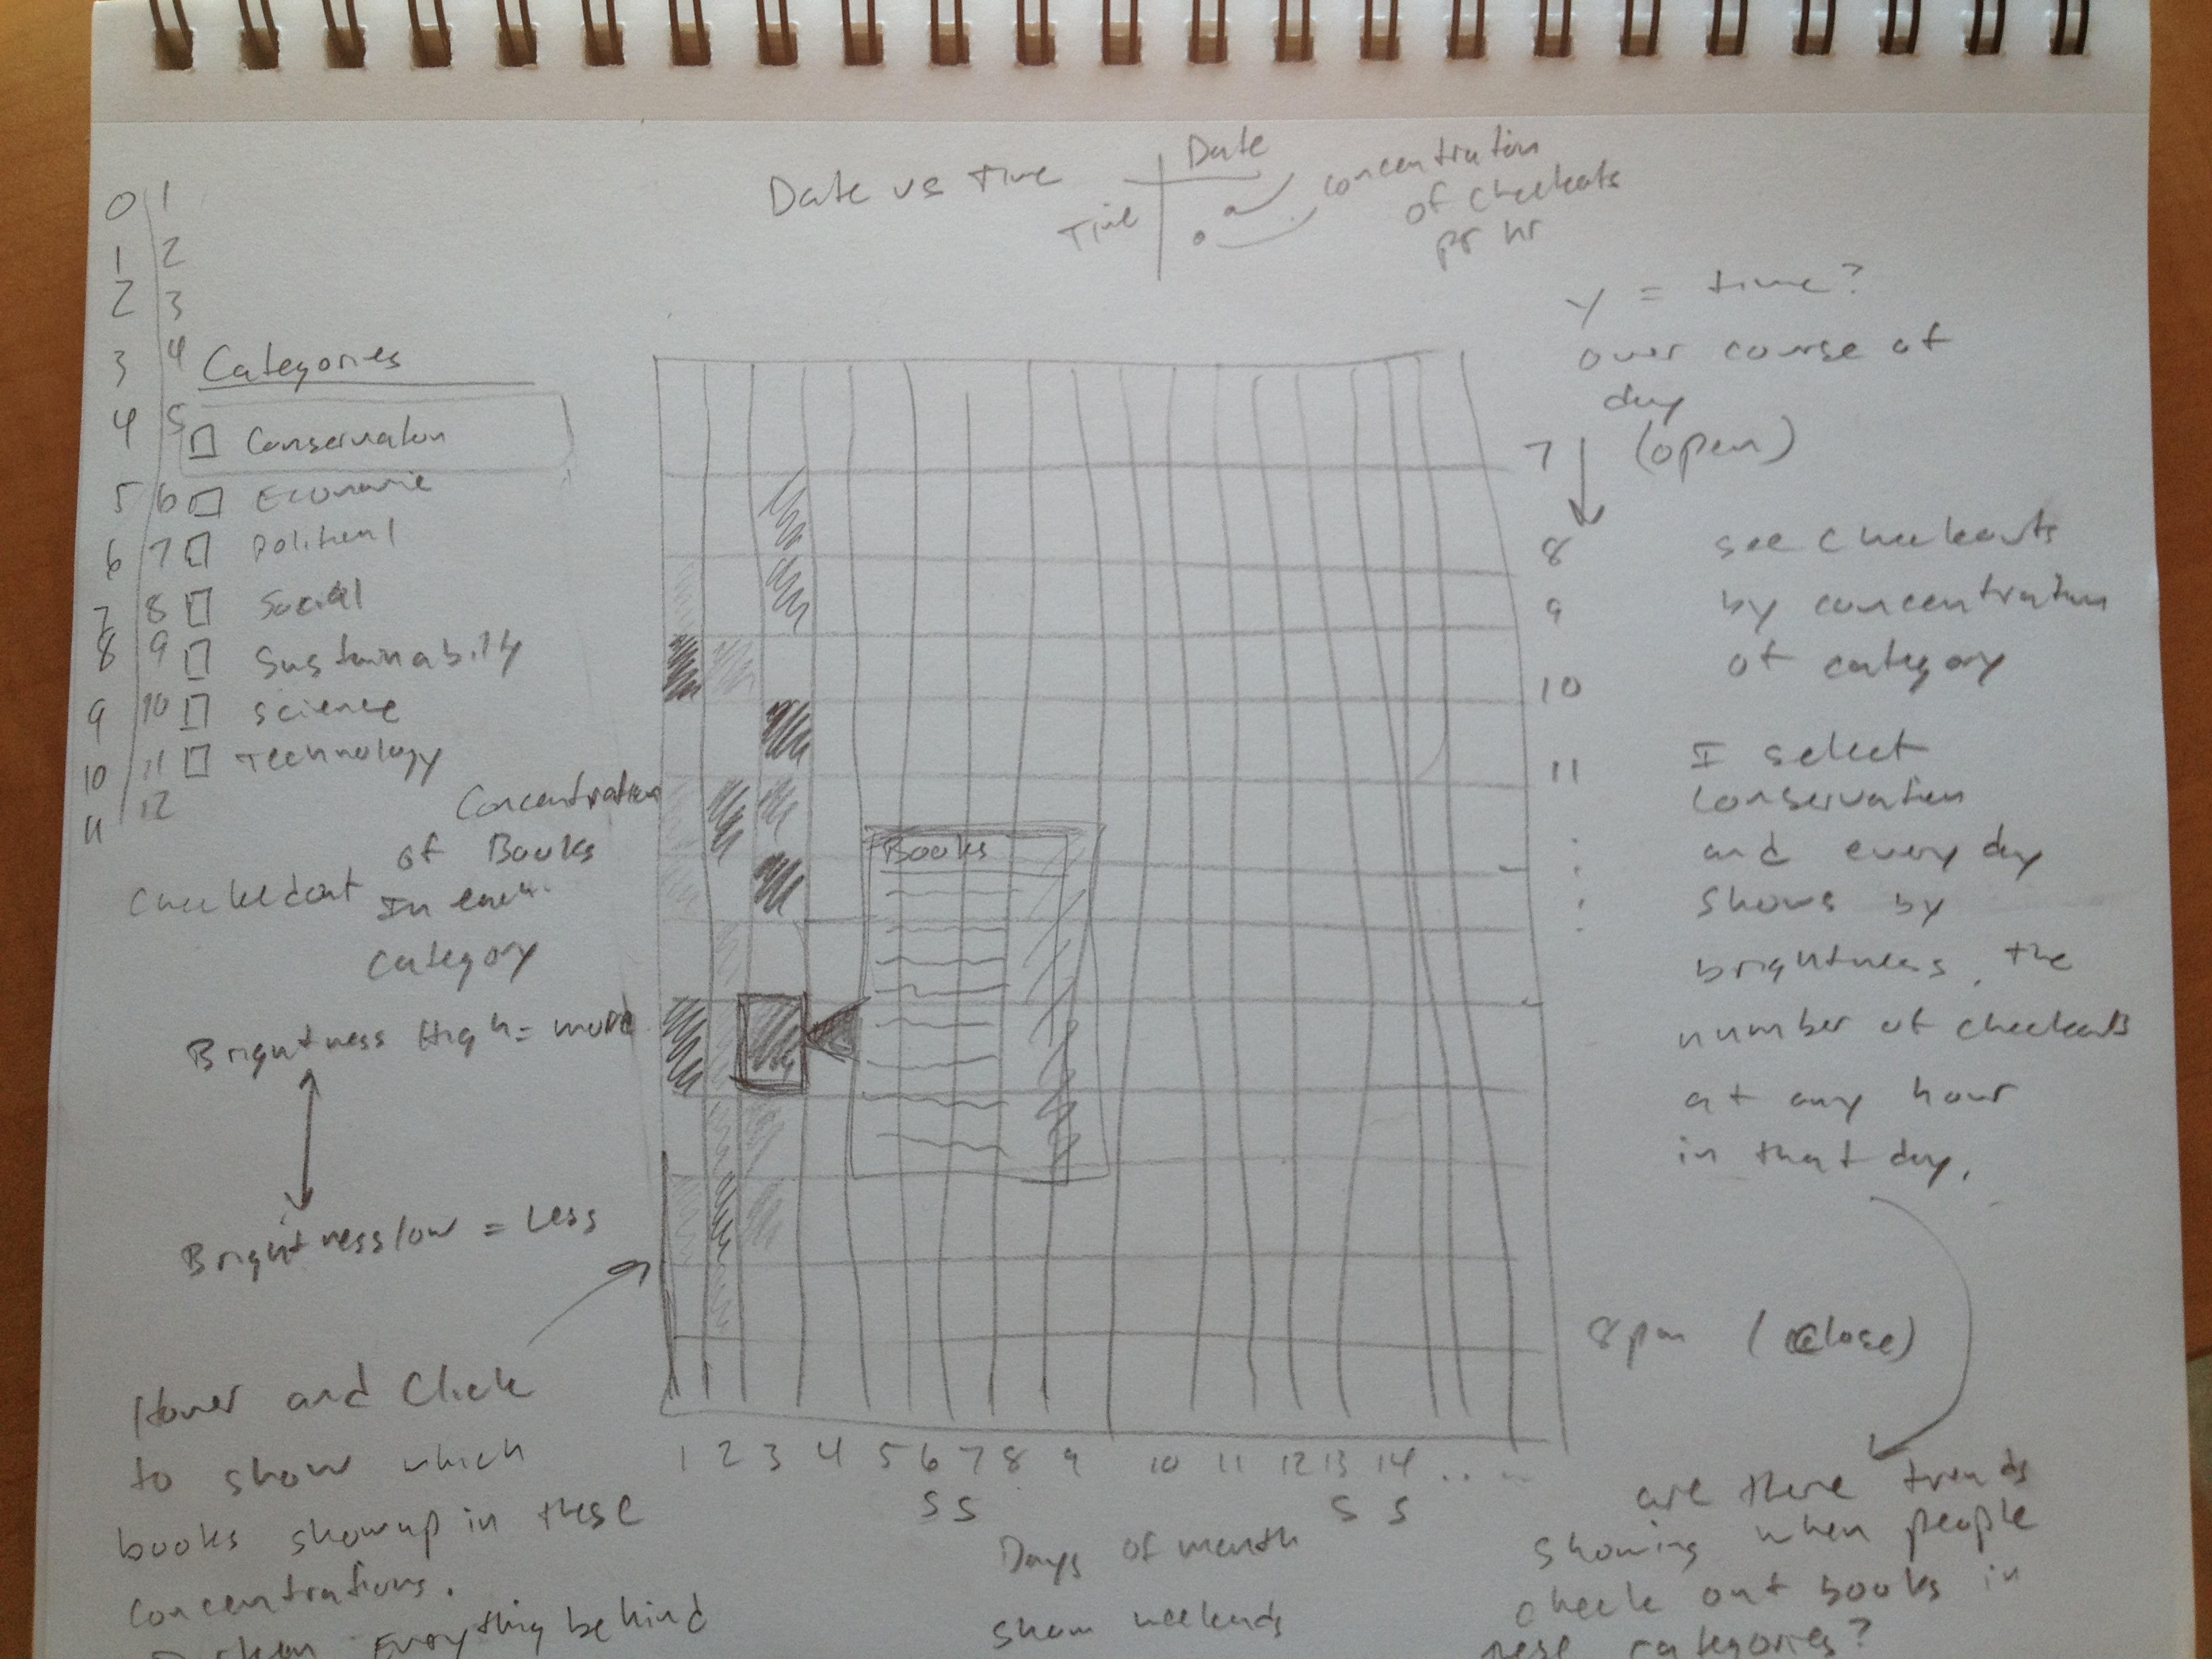 Date vs Time
Date
Time
concentration
of checkouts
pr hr
0 1
1 2
2 3
3 4
4 5
5 6
6 7
7 8
8 9
9 10
10 11
11 12
Categories
Conservation
Economic
Political
Social
Sustainability
Science
Technology
Concentration
of Books
Checked out In each
category
Brightness High = more
Brightness low = Less
Hover and Click
to show which
books show up in these
concentrations.
Everything behind
Books
1 2 3 4 5 6 7 8 9 10 11 12 13 14 . . . .
S S S S
Days of month
show weekends
y = time?
over course of
day
7 (open)
8
9
10
11
8pm (close)
see checkouts
by concentration
of category
I select
conservation
and every day
shows by
brightness, the
number of checkouts
at any hour
in that day.
are there trends
showing when people
check out books in
these categories?